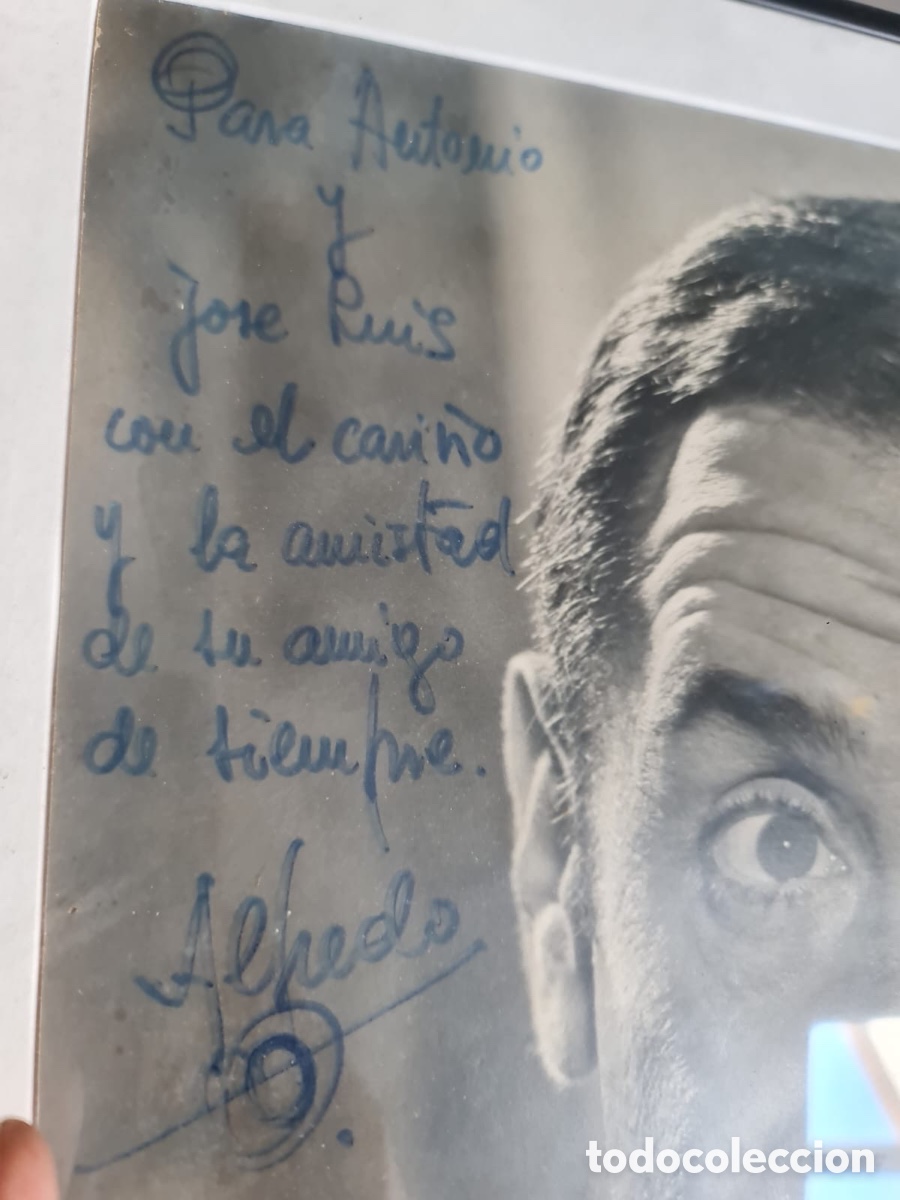 Para Antonio
y
Jose Luis
con el cariño
y la amistad
de su amigo
de siempre.
Alfredo
todocoleccion